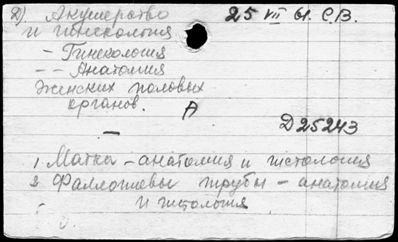 2) Акушерство 25 VII 61. С.В.
и гинекология
– Гинекология
– – Анатомия
женских половых
органов. А
Д25243
1. Матка – анатомия и гистология
2. Фаллопиевы трубы – анатомия
и гистология